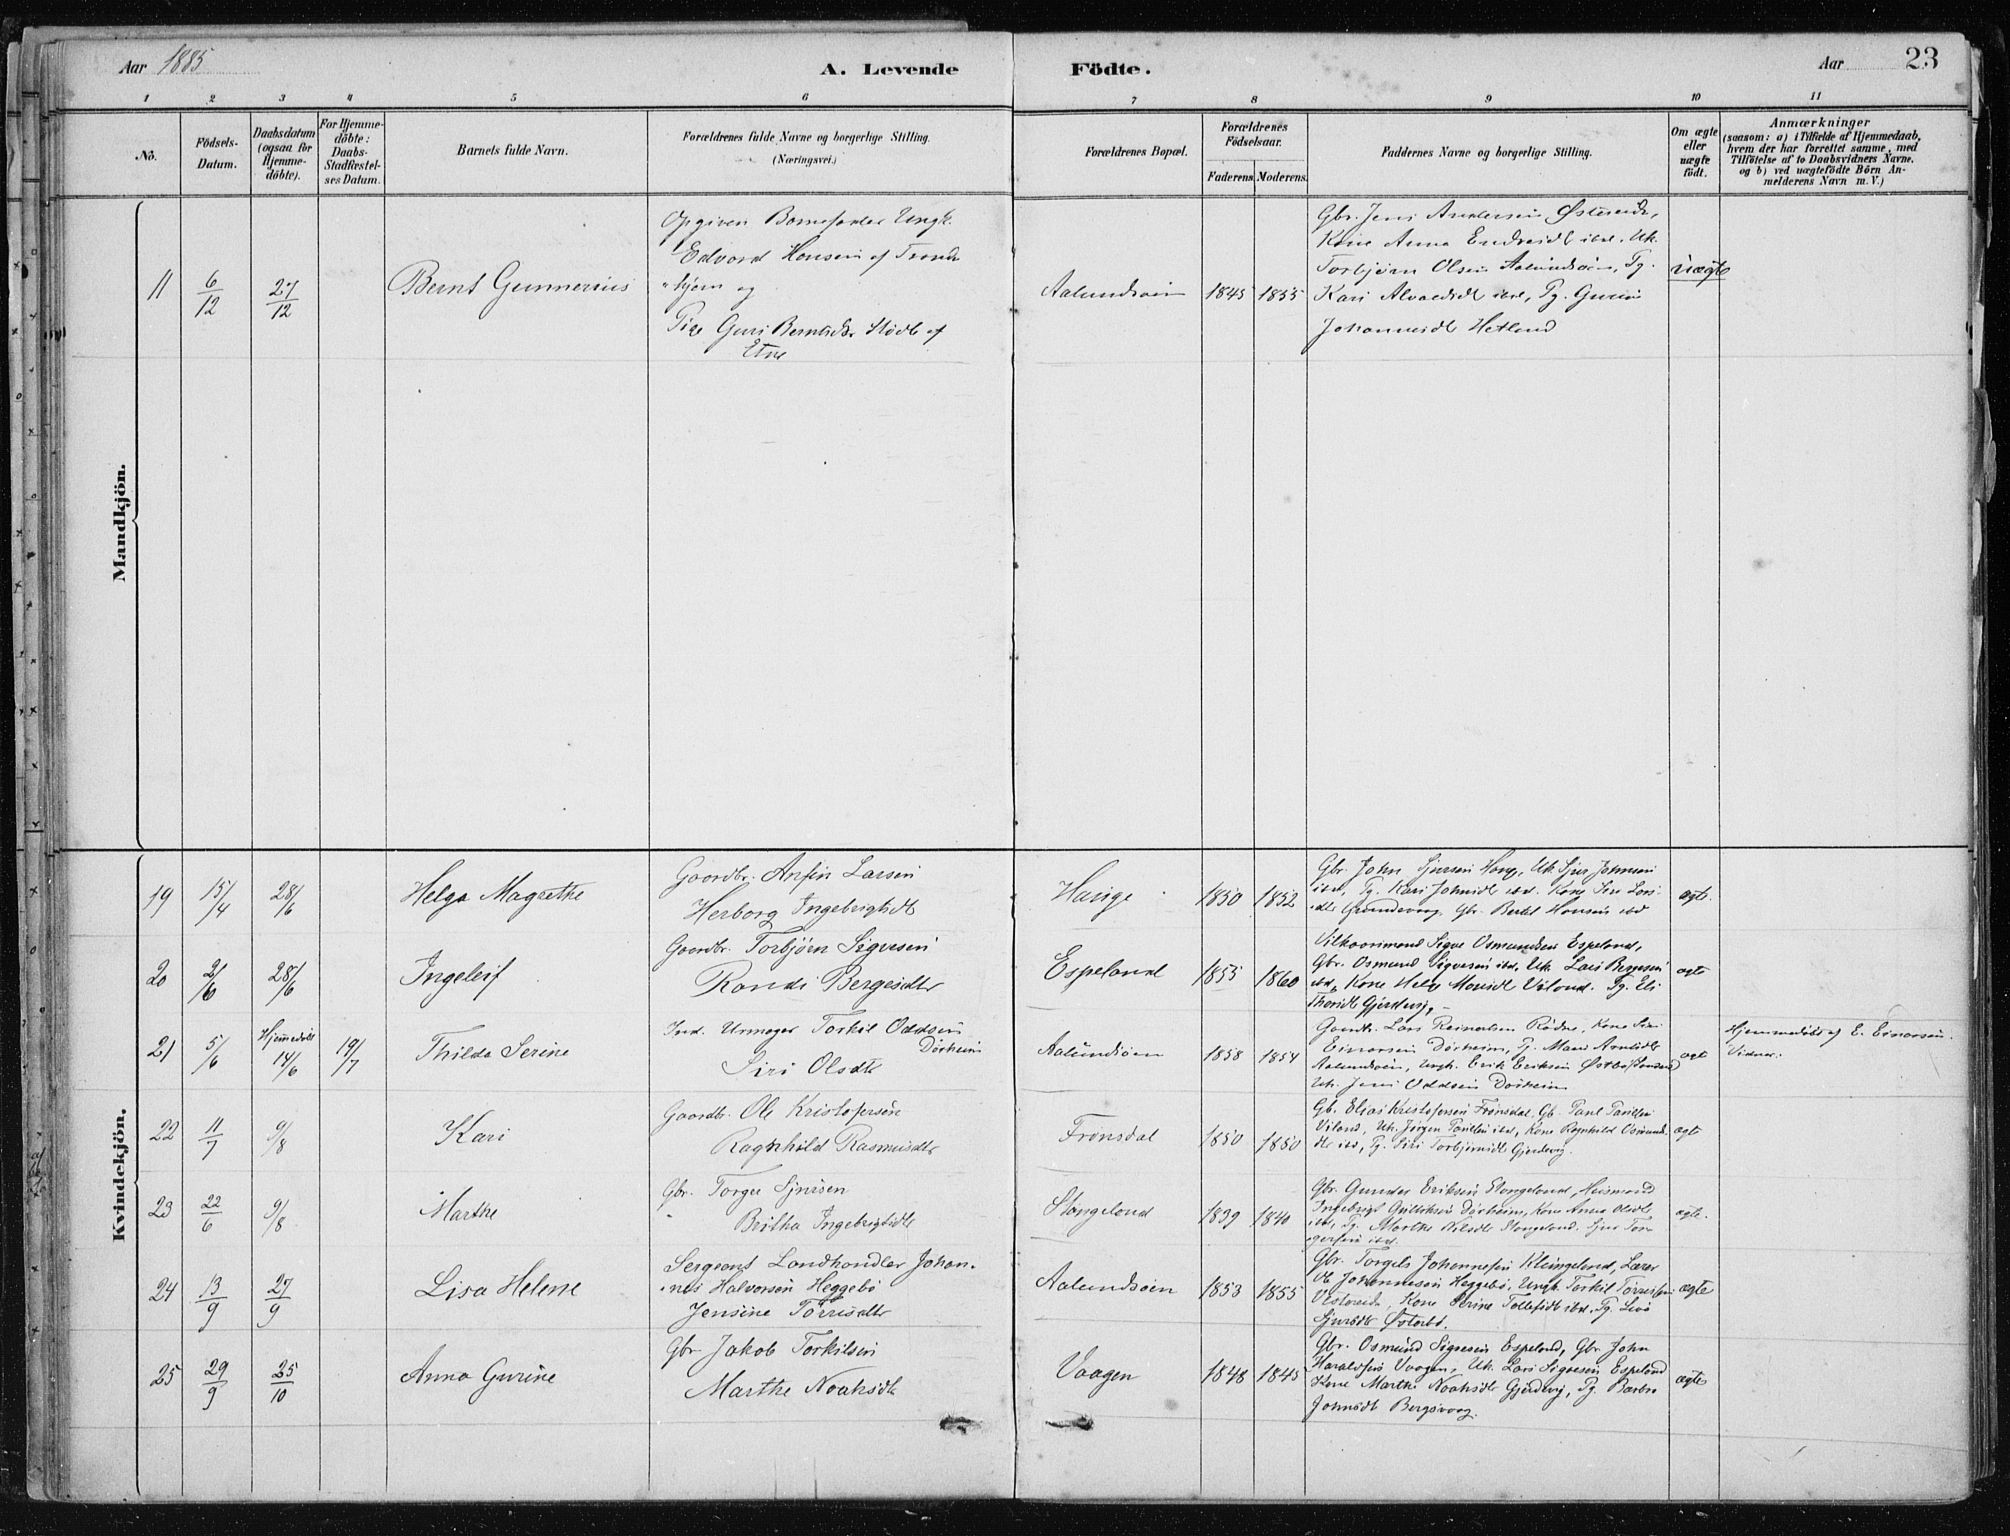 Aar 1885
A. Levende
Födte.
Aar
23
1 2 3 4 5 6 7 8 9 10 11
No.
Födsels-
Datum.
Daabsdatum
(ogsaa for
Hjemme-
döbte).
For Hjemme-
döbte:
Daabs-
Stadfæstel-
ses Datum.
Barnets fulde Navn.
Forældrenes fulde Navne og borgerlige Stilling.
(Næringsvei.)
Forældrenes Bopæl.
Forældrenes
Födselsaar.
Faderens. Moderens.
Faddernes Navne og borgerlige Stilling.
Om ægte
eller
uægte
födt.
Anmærkninger
(saasom: a) i Tilfælde af Hjemmedaab,
hvem der har forrettet samme, med
Tilföielse af to Daabsvidners Navne.
og b) ved uægtefödte Börn An-
melderens Navn m. V.)
Mandkjön.
11
6/12
27/12
Bernt Gunnerius
Opgiven Barnefader Ungk.
Edvard Hansen af Trond-
hjem og
Pige Guri Berntsdtr Stødle af
Etne
Aalundsøen
1845
1855
Gbr. Jens Andersen Østereide,
Kone Anna Endreidt ibd, Uk.
Torbjørn Olsen Aalundsøen, Pg.
Kari Alvaldsdt ibd, Pg. Gurine
Johannesdt Hetland
uægte
Kvindekjön.
19
15/4
28/6
Helga Magrethe
Gaardbr. Anfin Larsen
Herborg Ingebrigtsdt
Hauge
1850
1852
Gbr. John Sjursen Hauge, Uk. Sjur Johnsen
ibd, Pg. Kari Johnsdt ibd. Kone Siri Lars-
dtr Grundevaag, Gbr. Bertel Hansen ibd
ægte.
20
2/6
28/6
Ingeleif
Gaardbr. Torbjørn Sigvesen
Randi Bergesdtr
Espeland
1855
1860
Vilkaarsmand Sigve Osmundsen Espeland,
Gbr. Osmund Sigvesen ibd, Uk. Lars Bergesen
ibd, Kone Helga Monsdt Viland. Pg. Eli
Thorsdt Gjerdevig.
ægte
21
5/6
Hjemmedøbt
14/6
19/7
Thilda Serine
Ind. Urmager Torkil Oddsen
Dørheim
Siri Olsdtr
Aalundsøen
1858
1854
Gaardbr. Lars Reinertsen Rødne, Kone Siri
Einarsen Dørheim, Pg. Mari Arnesdtr
Aalundsøen, Ungk. Erik Eriksen Østbø
Uk. Jens Oddsen Dørheim
ægte
Hjemmedøbt af E. Einarsen.
Vidner:
22
11/7
9/8
Kari
Gaardbr. Ole Kristofersen
Ragnhild Rasmusdtr
Frønsdal
1850
1850
Gb. Elias Kristofersen Frønsdal, Gb. Paul Paulsen
Viland, Uk. Jørgen Paulsen ibd, Kone Ragnhild Osmunds-
dtr ibd, Pg. Siri Torbjørnsdt Gjerdevig.
ægte
23
22/6
9/8
Marthe
Gbr. Torger Sjursen
" Britha Ingebrigtsdt
Stangeland
1839
1840
Gbr. Gunder Eriksen Stangeland, Huusmand
Ingebrigt Gulleksen Dørheim, Kone Anna Olsdt
ibd, Pg. Marthe Nilsdt Stangeland. Sjur Tor-
gersen ibd.
ægte.
24
13/9
27/9
Lisa Helene
Sergeant Landhandler Johan-
nes Halvorsen Heggebø
Jensine Tørrisdtr
Aalundsøen
1853
1855
Gbr. Torgels Johannesen Kleingeland, Lærer
Ole Johannesen Heggebø, Ungk. Torkil Tørrisen
Vestereide, Kone Serine Tollefsdt ibd, Pg. Lisa
Sjursdtr Østebø.
ægte
25
29/9
25/10
Anna Gurine
Gbr. Jakob Torkilsen
Marthe Noahsdt
Vaagen
1848
1845
Gbr. Osmund Sigvesen Espeland, Gbr. John
Haraldsen Vaagen, Uk. Lars Sigvesen Espeland
Kone Marthe Noahsdt Gjerdevig, Pg. Barbro
Johnsdt Bergsvaag.
ægte